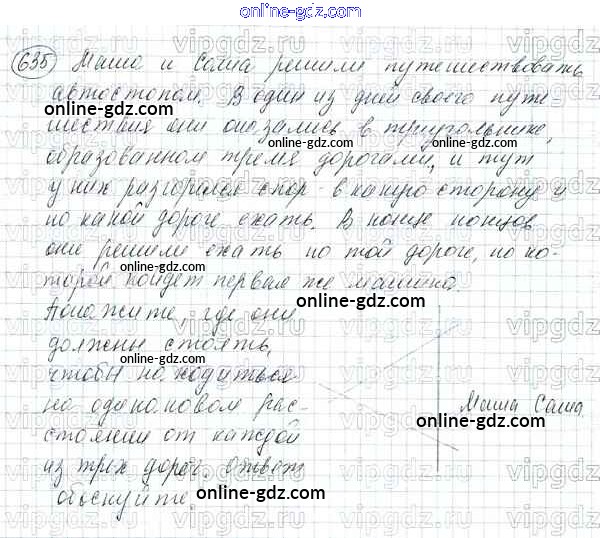 online-gdz.com
635 Маша и Саша решили путешествовать
автостопом. В один из дней своего путе-
шествия они оказались в треугольнике,
образованном тремя дорогами, и тут
у них разгорелся спор - в какую сторону и
по какой дороге ехать. В конце концов
они решили ехать по той дороге, по ко-
торой пойдет первая же машина.
Покажите, где они
должны стоять,
чтобы находиться
на одинаковом рас-
стоянии от каждой
из трех дорог. Ответ
обоснуйте.
Маша Саша
online-gdz.com
online-gdz.com
online-gdz.com
online-gdz.com
online-gdz.com
online-gdz.com
online-gdz.com
online-gdz.com
vipgdz.com
vipgdz.com
vipgdz.com